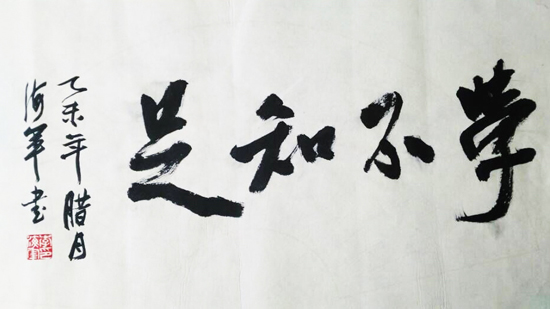 学不知足
乙未年腊月
海军書